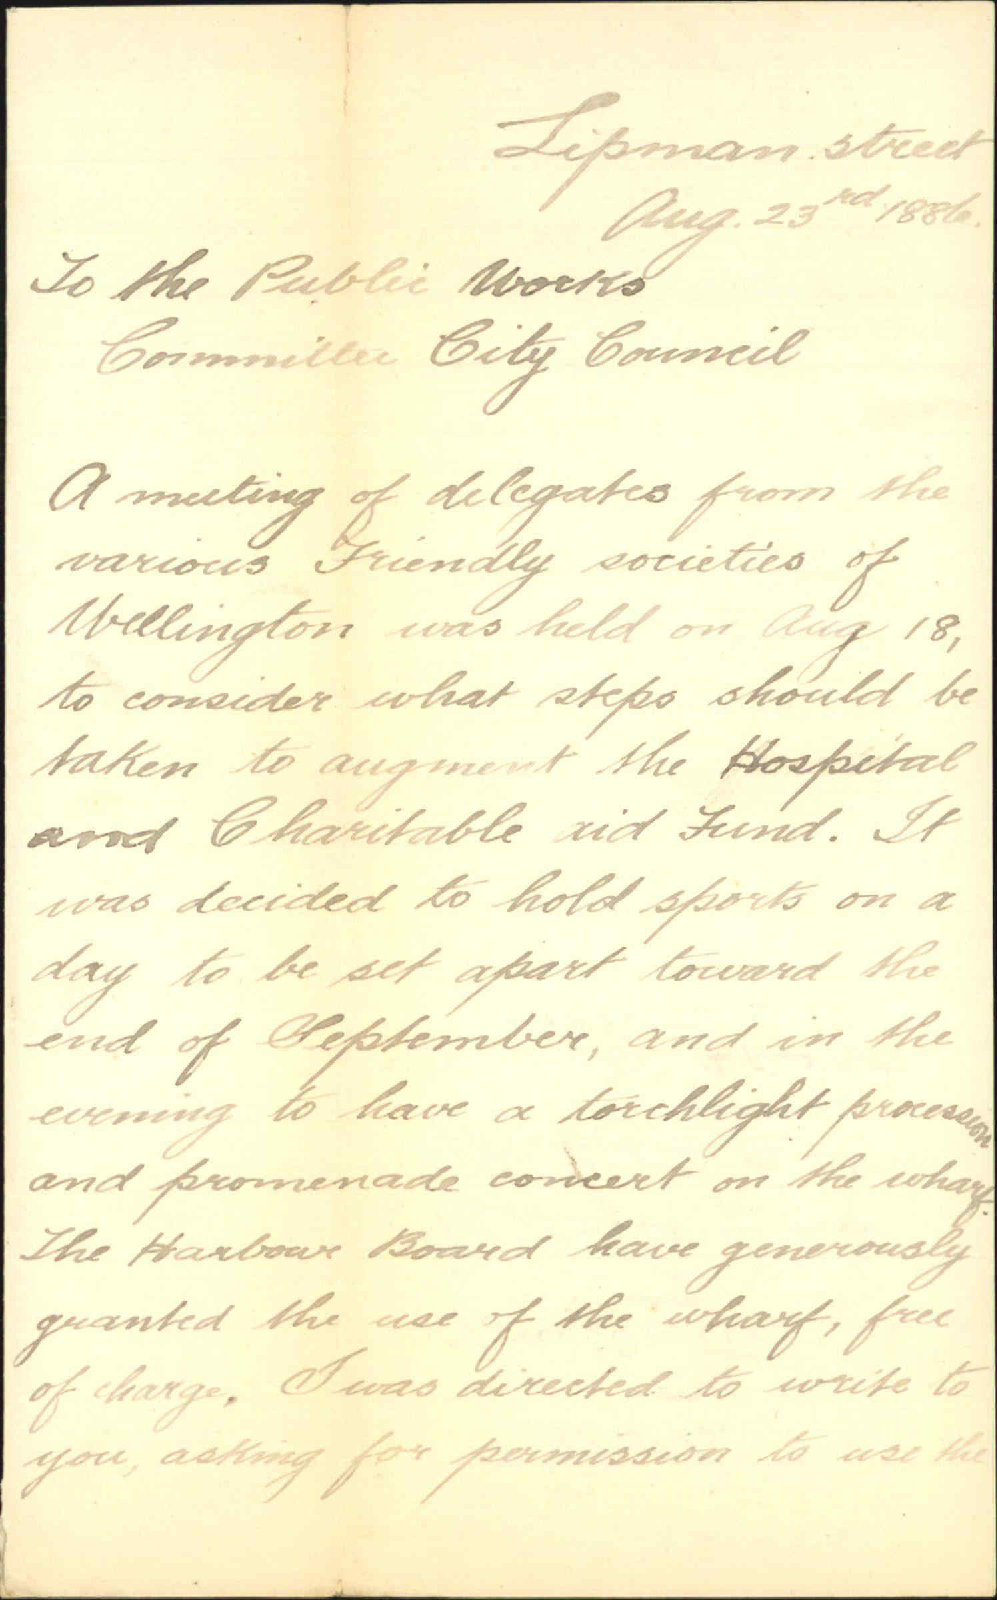 Lipman street
Aug. 23rd 1886.
To the Public Works
Committee City Council
A meeting of delegates from the
various Friendly societies of
Wellington was held on Aug 18,
to consider what steps should be
taken to augment the Hospital
and Charitable aid Fund. It
was decided to hold sports on a
day to be set apart toward the
end of September, and in the
evening to have a torchlight procession
and promenade concert on the wharf.
The Harbour Board have generously
granted the use of the wharf, free
of charge. I was directed to write to
you, asking for permission to use the